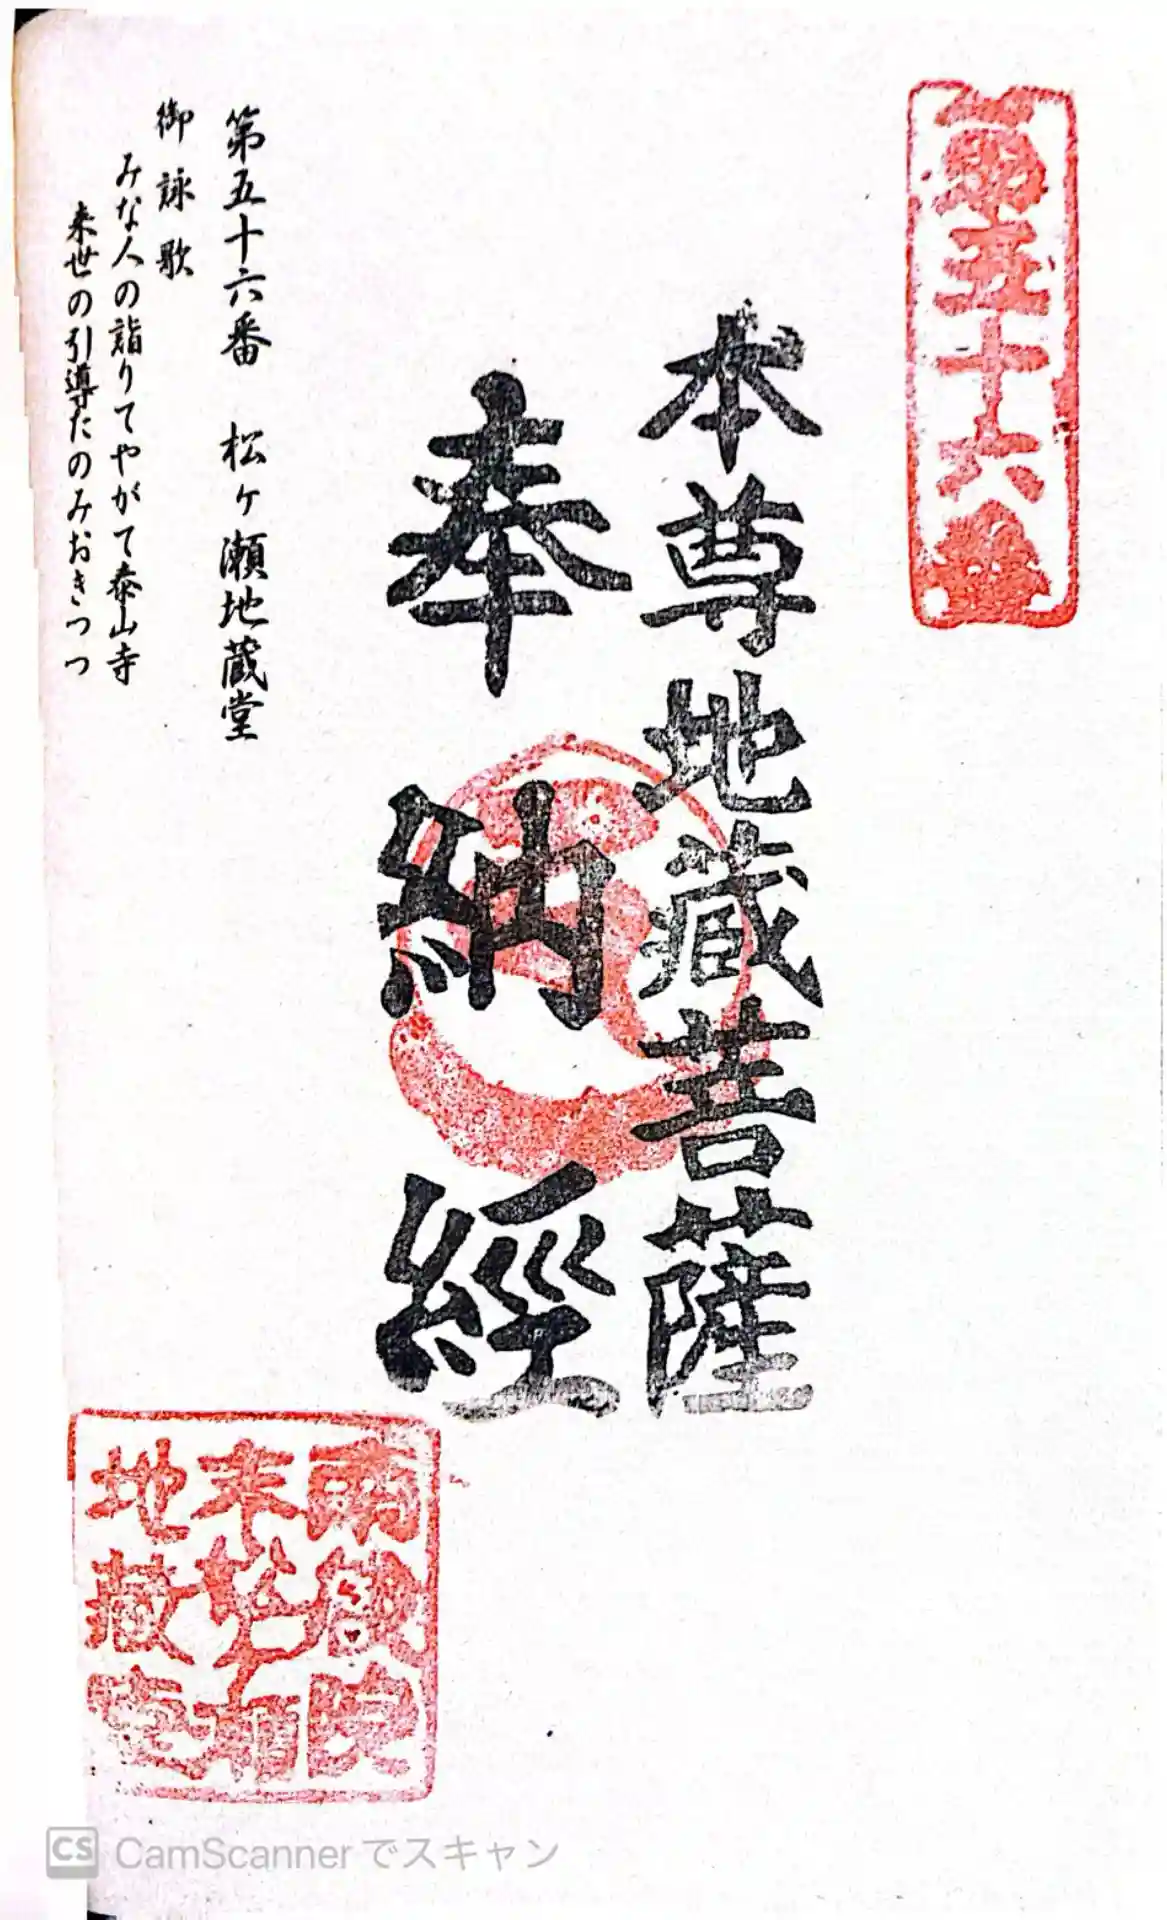 第五十六番
本尊地蔵菩薩
奉納經
第五十六番 松ヶ瀬地蔵堂
御詠歌
みな人の詣りてやがて泰山寺
来世の引導たのみおきつつ
院
末松ヶ瀬
地蔵堂
CS CamScannerでスキャン